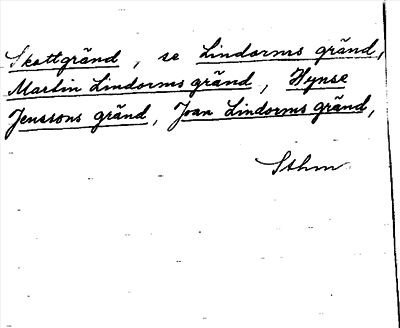 Skottgränd, se Lindorms gränd,
Martin Lindorms gränd, Hynse
Jenssons gränd, Joan Lindorms gränd,
Sthm